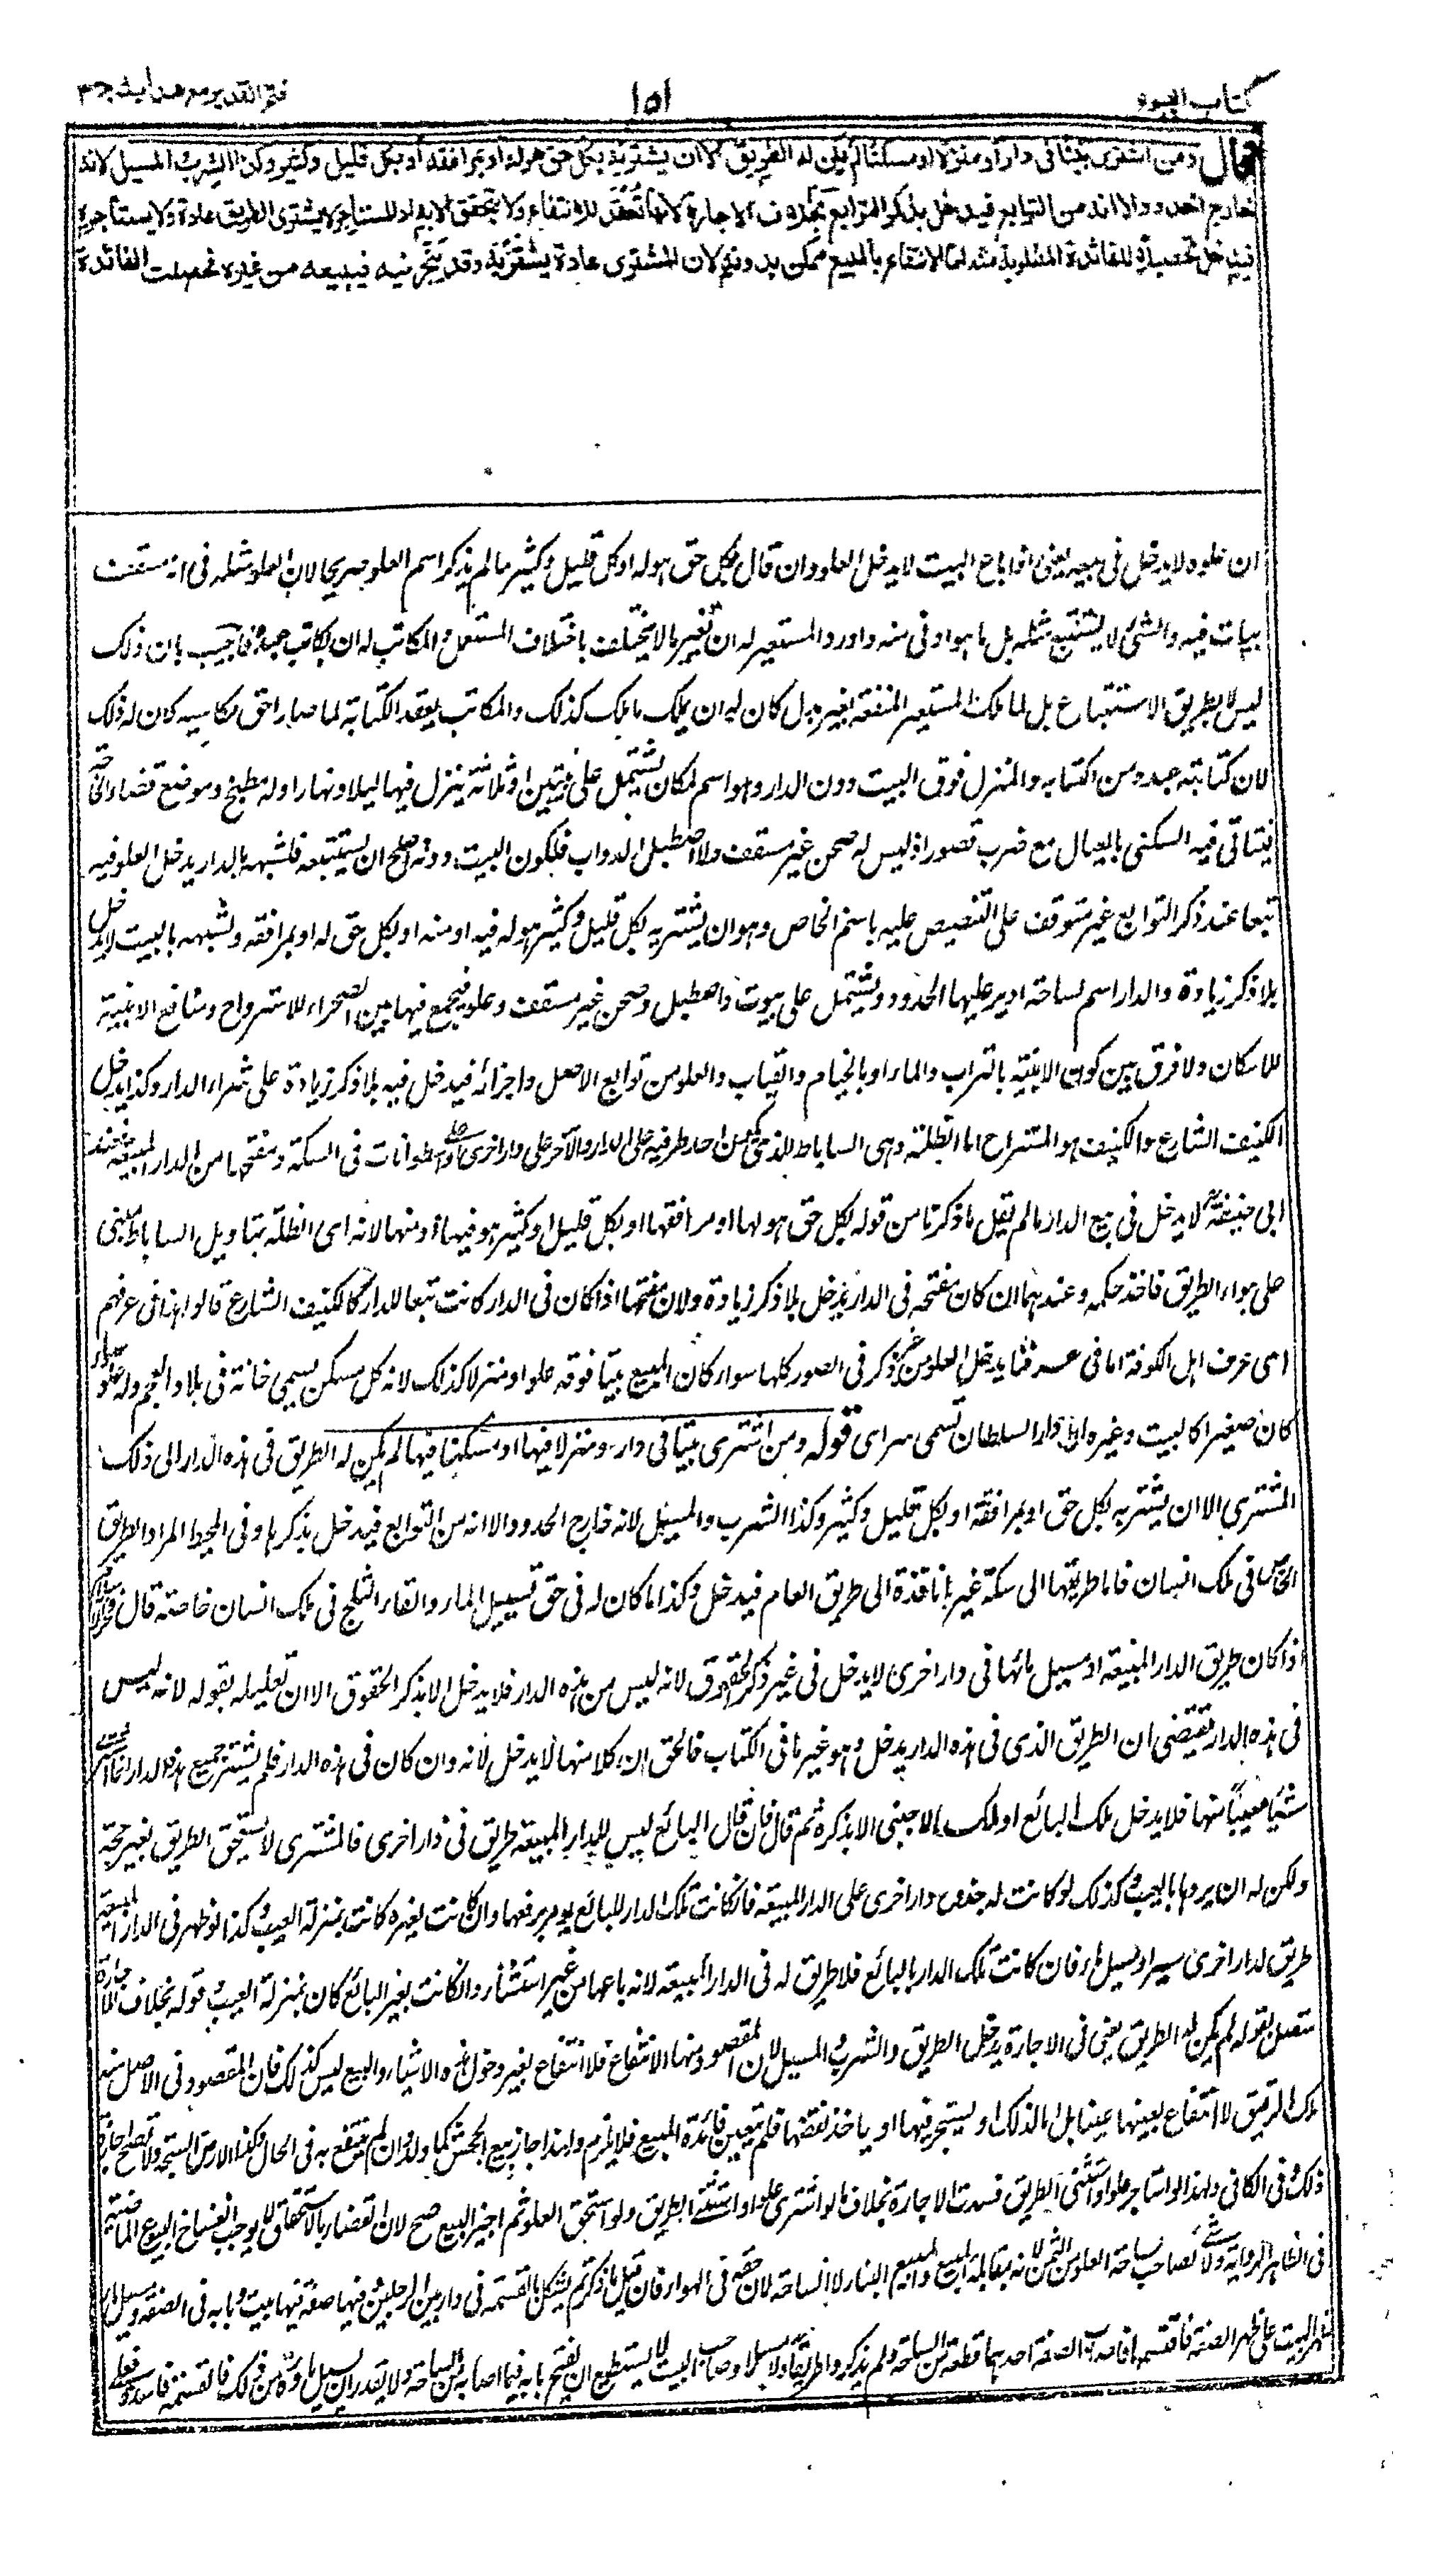 كتاب البيوع
١٥١
فتح القدير مع هدايه ج ٣
قال ومن اشترى بيتا فى دار او منزلا او مسكنا لم يكن له الطريق الا ان يشتريه بكل حق هو له او بمرافقه او بكل قليل وكثير وكذا الشرب والمسيل لانه
خارج الحدود الا انه من التوابع فيدخل بذكر التوابع بخلاف الاجارة لانها تعقد للانتفاع ولا يتحقق الا به اذ المستاجر لا يشترى الطريق عادة ولا يستاجره
فيدخل تحصيلا للفائدة المطلوبة منه اما الانتفاع بالمبيع ممكن بدونه لان المشترى عادة يشتريه وقد يتجر فيه فيبيعه من غيره فحصلت الفائدة
ان علوه لا يدخل فى بيعه يعنى اذا باع البيت لا يدخل العلو وان قال بكل حق هو له او كل قليل وكثير ما لم يذكر اسم العلو صريحا لان العلو مثله فى انه مسقف
يبات فيه والشئ لا يستتبع مثله بل ما هو ادنى منه واورد المستعير له ان يعير ما لا يختلف باختلاف المستعمل والمكاتب له ان يكاتب عبده فاجيب بان ذلك
ليس بطريق الاستتباع بل لما ملك المستعير المنفعة بغير بدل كان له ان يملك ما ملك كذلك والمكاتب بعقد الكتابة لما صار احق بمكاسبه كان له ذلك
لان كتابته عبده من اكتسابه والمنزل فوق البيت ودون الدار وهو اسم لمكان يشتمل على بيتين او ثلاثة ينزل فيها ليلا ونهارا وله مطبخ وموضع قضاء الحاجة
فيتاتى فيه السكنى بالعيال مع ضرب قصور اذ ليس له صحن غير مسقف ولا اصطبل الدواب فلكون البيت دونه صلح ان يستتبعه فلشبهه بالدار يدخل العلو فيه
تبعا عند ذكر التوابع غير متوقف على التنصيص عليه باسمه الخاص وهو ان يشتريه بكل قليل وكثير هو له فيه او منه او بكل حق له او بمرافقه ولشبهه بالبيت لا يدخل
بلا ذكر زيادة والدار اسم لساحة ادير عليها الحدود وتشتمل على بيوت واصطبل وصحن غير مسقف وعلو فيجمع فيها بين الصحراء للاسترواح ومنافع الابنية
للاسكان ولا فرق بين كون الابنية بالتراب والماء او بالخيام والقباب والعلو من توابع الاصل واجزائه فيدخل فيه بلا ذكر زيادة على شراء الدار وكذا يدخل
الكنيف الشارع والكنيف هو المستراح اما الظلة وهى الساباط الذى يكون احد طرفيه على الدار والآخر على دار اخرى او على اسطوانات فى السكة ومفتحها من الدار المبيعة فعند
ابى حنيفة لا يدخل فى بيع الدار ما لم يقل ما ذكرنا من قوله بكل حق هو لها او مرافقها او بكل قليل او كثير هو فيها او منها لانه اى الظلة بتاويل الساباط مبنى
على هواء الطريق فاخذ حكمه وعندهما ان كان مفتحه فى الدار يدخل بلا ذكر زيادة ولان مفتحها اذا كان فى الدار كانت تبعا للدار كالكنيف الشارع قالوا هذا فى عرفهم
اى عرف اهل الكوفة اما فى عرفنا يدخل العلو من غير ذكر فى الصور كلها سواء كان المبيع بيتا فوقه علو او منزلا كذلك لانه كل مسكن يسمى خانة فى بلاد العجم وله علو سواء
كان صغيرا كالبيت وغيره الا دار السلطان تسمى سراى قوله ومن اشترى بيتا فى دار ومنزلا فيها او مسكنا فيها لم يكن له الطريق فى هذه الدار الى ذلك
المشترى الا ان يشتريه بكل حق او بمرافقه او بكل قليل وكثير وكذا الشرب والمسيل لانه خارج الحدود الا انه من التوابع فيدخل بذكرها وفى المحيط المراد الطريق
الخاص فى ملك انسان فاما طريقها الى سكة غير نافذة الى طريق العام فيدخل وكذا ما كان له فى حق تسييل الماء والقاء الثلج فى ملك انسان خاصة قال فخر الاسلام
اذا كان طريق الدار المبيعة او مسيل مائها فى دار اخرى لا يدخل فى غير ذكر الحقوق لانه ليس من هذه الدار فلا يدخل الا بذكر الحقوق الا ان تعليله بقوله لانه ليس
فى هذه الدار يقتضى ان الطريق الذى فى هذه الدار يدخل وهو غير ما فى الكتاب فالحق ان كلا منهما لا يدخل لانه وان كان فى هذه الدار فلم يشتر جميع هذه الدار انما اشترى
شيئا معينا منها فلا يدخل ملك البائع او ملك الاجنبى الا بذكره ثم قال فان قال البائع ليس للدار المبيعة طريق فى دار اخرى فالمشترى لا يستحق الطريق بغير حجة
ولكن له ان يردها بالعيب وكذلك لو كانت له جذوع دار اخرى على الدار المبيعة فان كانت تلك الدار للبائع يومر برفعها وان كانت لغيره كانت بمنزلة العيب وكذا لو ظهر فى الدار المبيعة
طريق لدار اخرى او مسيل ماء فان كانت تلك الدار للبائع فلا طريق له فى الدار المبيعة لانه باعها من غير استثناء وان كانت لغير البائع كان بمنزلة العيب قوله بخلاف الاجارة
متصل بقوله لم يكن له الطريق يعنى فى الاجارة يدخل الطريق والشرب والمسيل لان المقصود منها الانتفاع فلا انتفاع بغير دخول هذه الاشياء والبيع ليس كذلك فان المقصود فى الاصل منه
ملك الرقبة لا انتفاع بعينها عينا بل اما لذلك او ليتجر فيها او ياخذ نقضها فلم تتعين فائدة المبيع فلا يلزم ولهذا جاز بيع الجحش كما ولد وان لم ينتفع به فى الحال وكذا الارض السبخة ولا تصح اجارة
ذلك فى الكافى ولهذا لو استاجر علوا واستثنى الطريق فسدت الاجارة بخلاف ما لو اشترى علوا واستثنى الطريق ولو استحق العلو ثم اجيز البيع صح لان القضاء بالاستحقاق لا يوجب انفساخ البيوع الماضية
فى الظاهر الرواية ولا شئ لصاحب ساحة العلو من الثمن لانه بمقابلة المبيع والمبيع البناء لا الساحة لان حقه فى الهواء فان قيل ما ذكرتم يشكل بالقسمة فى دار بين الرجلين فيها صفة فيها بيت وبابه فى الصفة ومسيل ماء
ظهر البيت على ظهر الصفة فاقتسما فاصاب الصفة احدهما وقطعة من الساحة ولم يذكروا طريقا ولا مسيلا وصاحب البيت لا يستطيع ان يفتح بابه فيما اصابه من الساحة ولا يقدر ان يسيل ماؤه من ذلك فالقسمة فاسدة